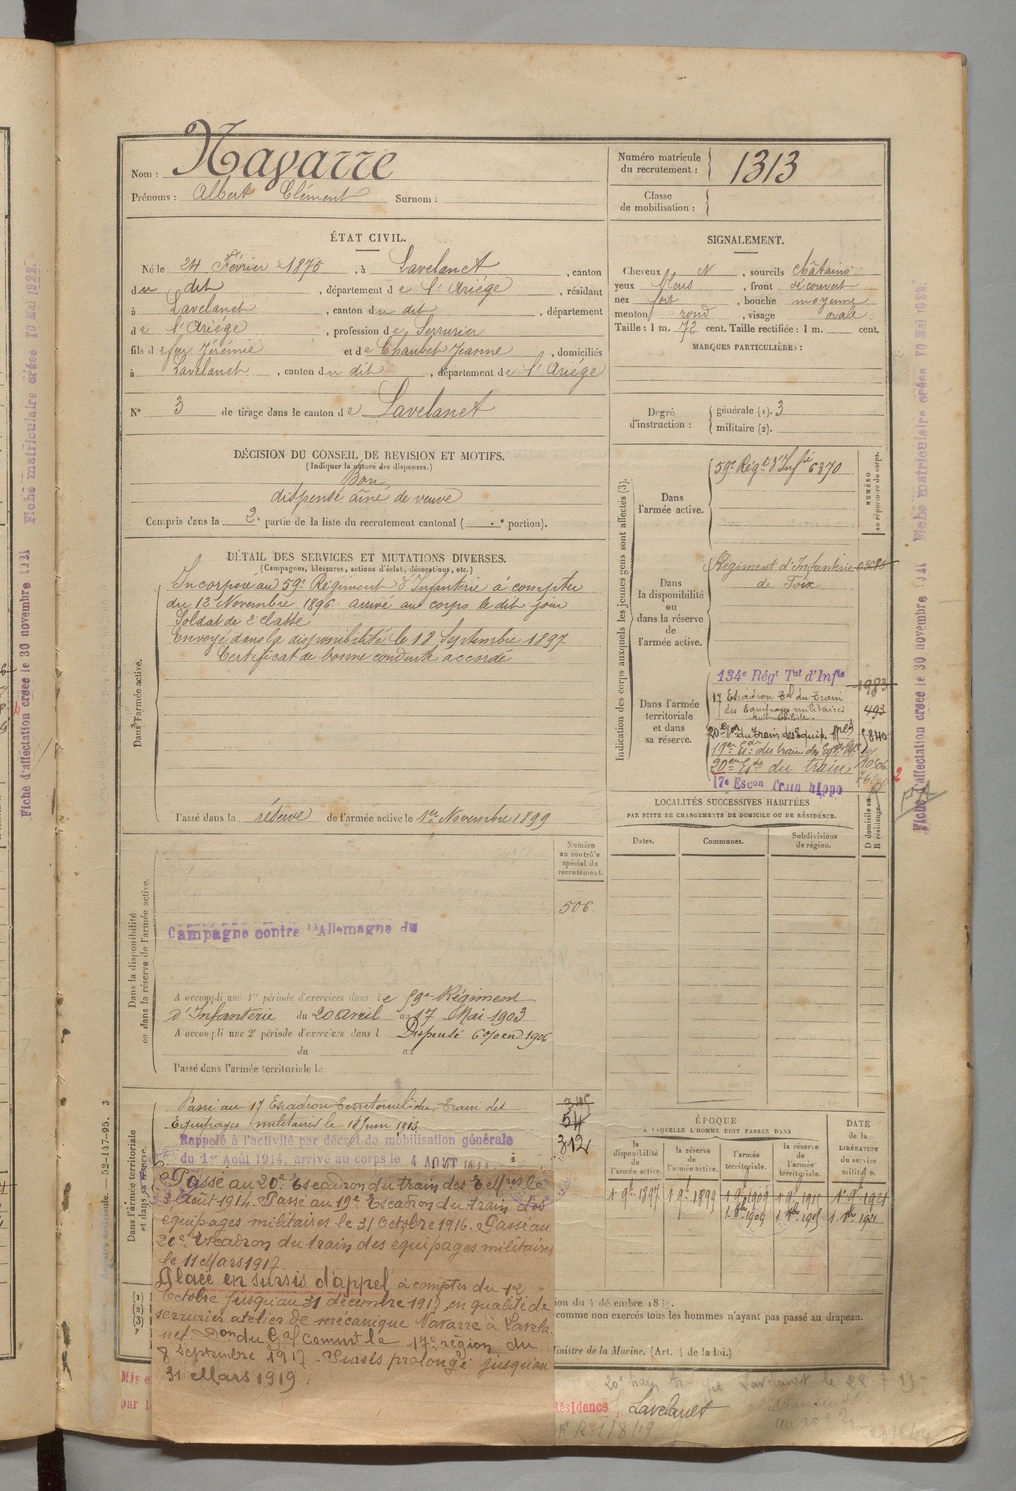 Nom : Navarre
Prénoms : Albert Clément Surnom :
Numéro matricule du recrutement : 1313
Classe de mobilisation :
ÉTAT CIVIL.
Né le 24 Février 1875, à Lavelanet, canton
du dit, département de l'Ariège, résidant
à Lavelanet, canton du dit, département
de l'Ariège, profession de Serrurier
fils de feu Jérémie et de Chaubet Jeanne, domiciliés
à Lavelanet, canton du dit, département de l'Ariége
N° 3 de tirage dans le canton de Lavelanet
SIGNALEMENT.
Cheveux N, sourcils châtains
yeux bleus, front découvert
nez fort, bouche moyenne
menton rond, visage ovale
Taille : 1 m. 72 cent. Taille rectifiée : 1 m. cent.
MARQUES PARTICULIÈRES :
Degré d'instruction : générale (1). 3
militaire (2).
DÉCISION DU CONSEIL DE REVISION ET MOTIFS.
(Indiquer la nature des dispenses.)
Bon
dispensé aîné de veuve
Compris dans la 2e partie de la liste du recrutement cantonal ( e portion).
DÉTAIL DES SERVICES ET MUTATIONS DIVERSES.
(Campagnes, blessures, actions d'éclat, décorations, etc.)
Dans l'armée active.
Incorporé au 59e Régiment d'Infanterie à compter
du 12 Novembre 1896 arrivé au corps le dit jour
Soldat de 2e classe
Envoyé dans la disponibilité le 18 Septembre 1897
Certificat de bonne conduite accordé
Passé dans la réserve de l'armée active le 1er Novembre 1899
Indication des corps auxquels les jeunes gens sont affectés (3).
Dans l'armée active.
59e Régt d'Infie 6370
NUMÉRO au répertoire du corps.
Dans la disponibilité ou dans la réserve de l'armée active.
Régiment d'Infanterie
de Foix
Dans l'armée territoriale et dans sa réserve.
134e Régt Tal d'Infie 1983
17 Escadron Tal du Train
des Equipages militaires 493
20e Eon du train des Equip. Mres
19e Eon du train des Eqges
20e Eon du train
17e Escon Train hippo
LOCALITÉS SUCCESSIVES HABITÉES
PAR SUITE DE CHANGEMENTS DE DOMICILE OU DE RÉSIDENCE.
Dates. Communes. Subdivisions de région. D domicile ou R résidence.
Dans la disponibilité ou dans la réserve de l'armée active.
Numéro au contrôle spécial du recrutement.
506
Campagne contre l'Allemagne du
A accompli une 1re période d'exercices dans le 59e Régiment
d'Infanterie du 20 avril au 17 Mai 1903
A accompli une 2e période d'exercices dans l Dispensé 6% en 1906
du au
Passé dans l'armée territoriale le
Dans l'armée territoriale et dans sa réserve.
Passé au 17 Escadron territorial du train des
Equipages militaires le 1 Juin 1913
54
312
Rappelé à l'activité par décret de mobilisation générale
du 1er Août 1914, arrivé au corps le 4 AOUT 1914
Passé au 20e Escadron du train des Eq Mres le
Août 1914. Passé au 19e Escadron du train des
équipages militaires le 31 Octobre 1916. Passé au
20e Escadron du train des équipages militaires
le 11 Mars 1917.
Placé en sursis d'appel à compter du 12
Octobre jusqu'au 31 décembre 1917 en qualité de
serrurier atelier de mécanique Navarre à Lavela
net. Don du Gal Commt la 17e région du
8 Septembre 1917. Sursis prolongé jusqu'au
31 Mars 1919.
ÉPOQUE
À LAQUELLE L'HOMME DOIT PASSER DANS
la disponibilité de l'armée active. la réserve de l'armée active. l'armée territoriale. la réserve de l'armée territoriale.
DATE de la LIBÉRATION du service militaire.
1 9e 1897 1 9e 1899 1 9e 1909 1 9e 1915 1 9e 1921
comme non exercés tous les hommes n'ayant pas passé au drapeau.
Ministre de la Marine. (Art. 4 de la loi.)
Résidence Lavelanet
52-147-95. 3
Fiche d'affectation créée le 30 novembre 1921 Fiche matriculaire créée 10 Mai 1922.
Fiche d'affectation créée le 30 novembre 1921 Fiche matriculaire créée 10 Mai 1922.